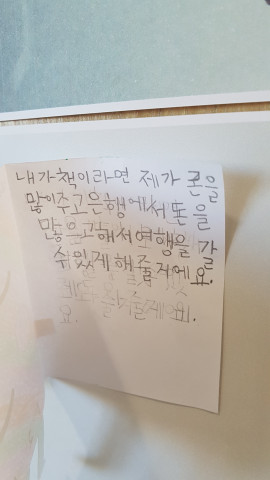 내가책이라면 제가 돈을
많이주고은행에서돈을
만들고해서여행을 갈
수있게해줄거에요.
요.